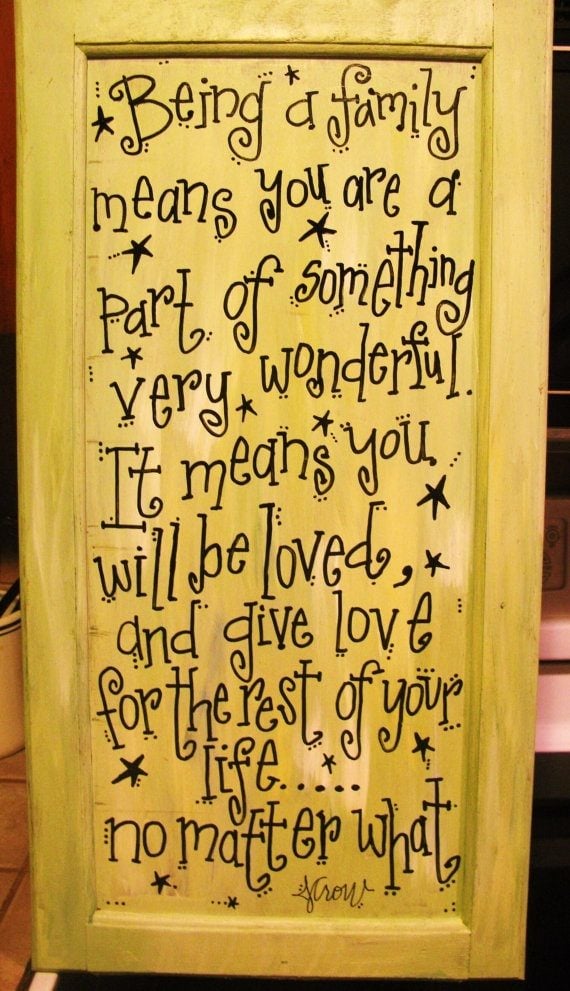 Being a family
means you are a
part of something
very wonderful.
It means you
will be loved,
and give love
for the rest of your
life.....
no matter what
SCrow